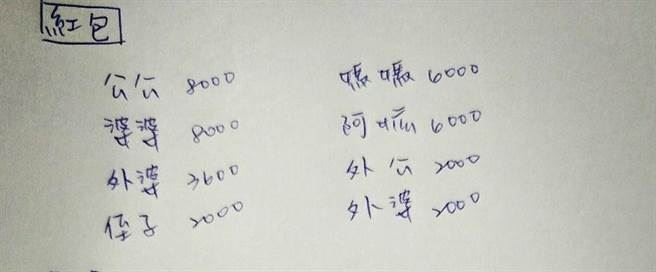 紅包
公公 8000
婆婆 8000
外婆 3600
侄子 2000
媽媽 6000
阿嬤 6000
外公 2000
外婆 2000